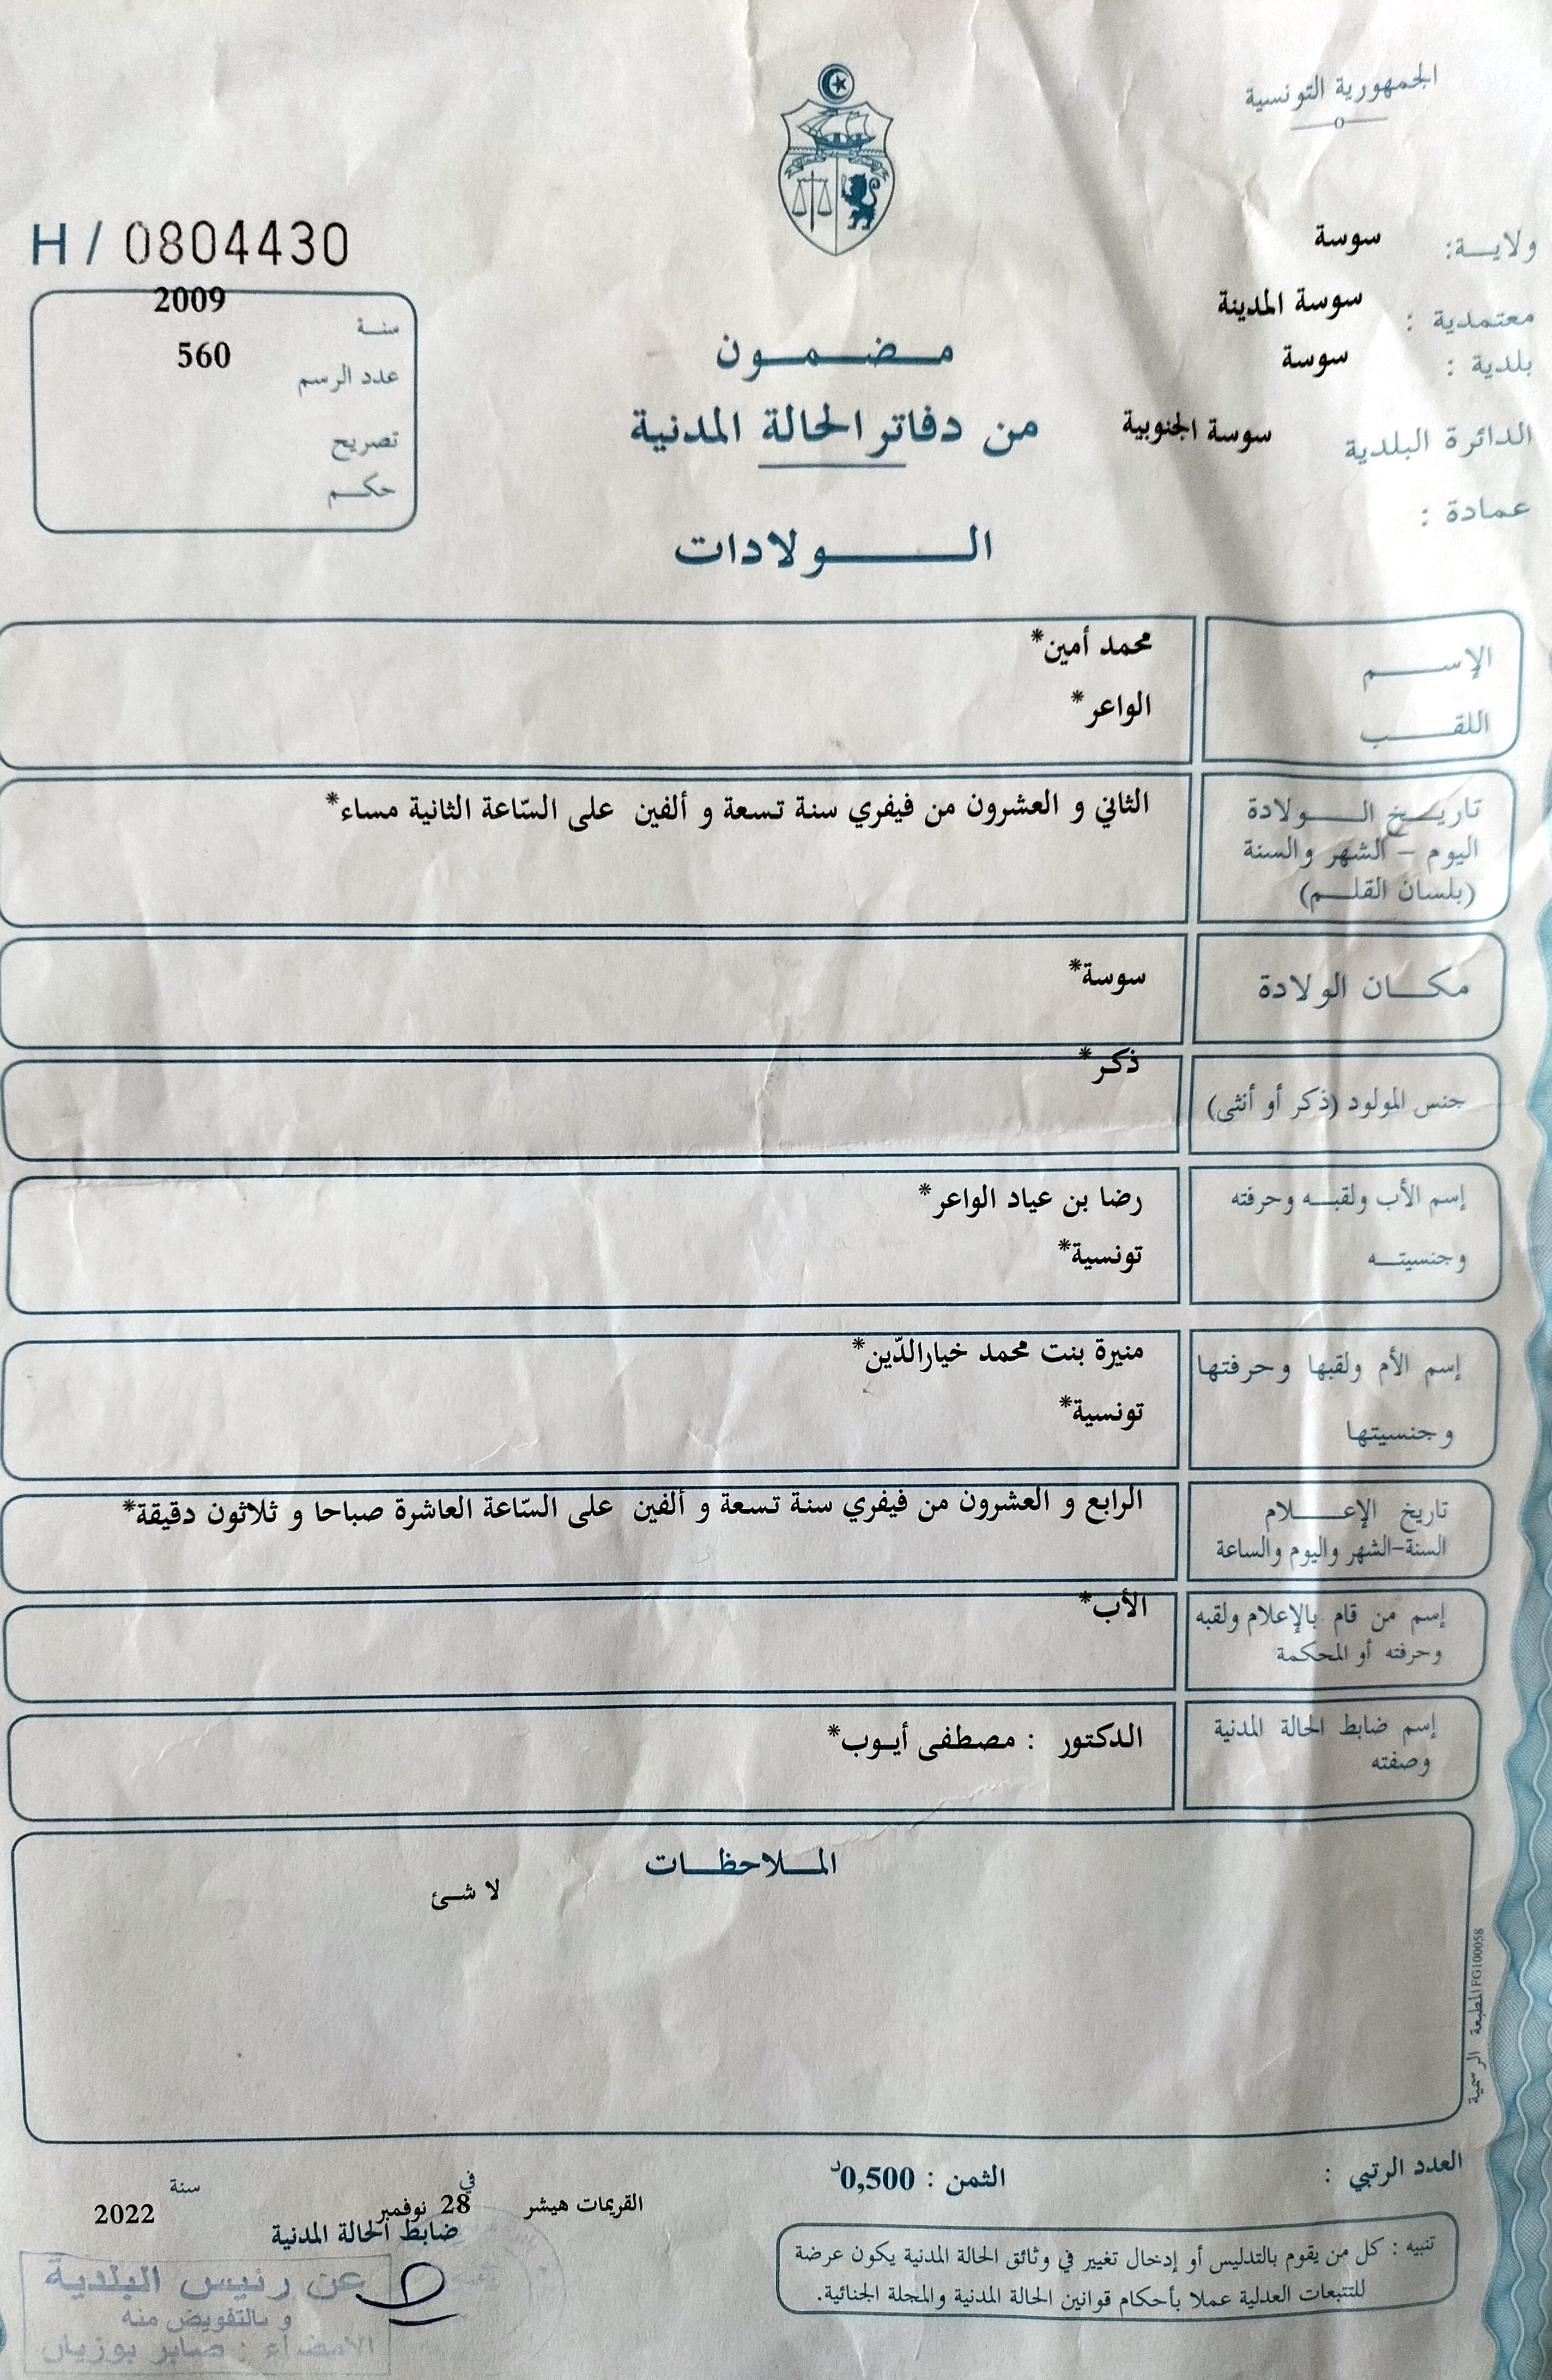 الجمهورية التونسية
ولايــة: سوسة
معتمدية : سوسة المدينة
بلدية : سوسة
الدائرة البلدية سوسة الجنوبية
عمادة :
H / 0804430
سنة 2009
عدد الرسم 560
تصريح
حكم
مضمون
من دفاتر الحالة المدنية
الولادات
الإسم محمد أمين*
اللقب الواعر*
تاريخ الولادة الثاني و العشرون من فيفري سنة تسعة و ألفين على السّاعة الثانية مساء*
اليوم - الشهر والسنة
(بلسان القلم)
مكان الولادة سوسة*
جنس المولود (ذكر أو أنثى) ذكر*
إسم الأب ولقبه وحرفته رضا بن عياد الواعر*
وجنسيته تونسية*
إسم الأم ولقبها وحرفتها منيرة بنت محمد خيارالدّين*
وجنسيتها تونسية*
تاريخ الإعلام الرابع و العشرون من فيفري سنة تسعة و ألفين على السّاعة العاشرة صباحا و ثلاثون دقيقة*
السنة-الشهر واليوم والساعة
إسم من قام بالإعلام ولقبه الأب*
وحرفته أو المحكمة
إسم ضابط الحالة المدنية الدكتور : مصطفى أيوب*
وصفته
الملاحظات
لا شئ
المطبعة الرسمية FG100058
العدد الرتبي :
الثمن : 0,500د
القريمات هيشر في 28 نوفمبر سنة 2022
ضابط الحالة المدنية
تنبيه : كل من يقوم بالتدليس أو إدخال تغيير في وثائق الحالة المدنية يكون عرضة
للتتبعات العدلية عملا بأحكام قوانين الحالة المدنية والمجلة الجنائية.
عن رئيس البلدية
و بالتفويض منه
الامضاء : صابر بوزيان